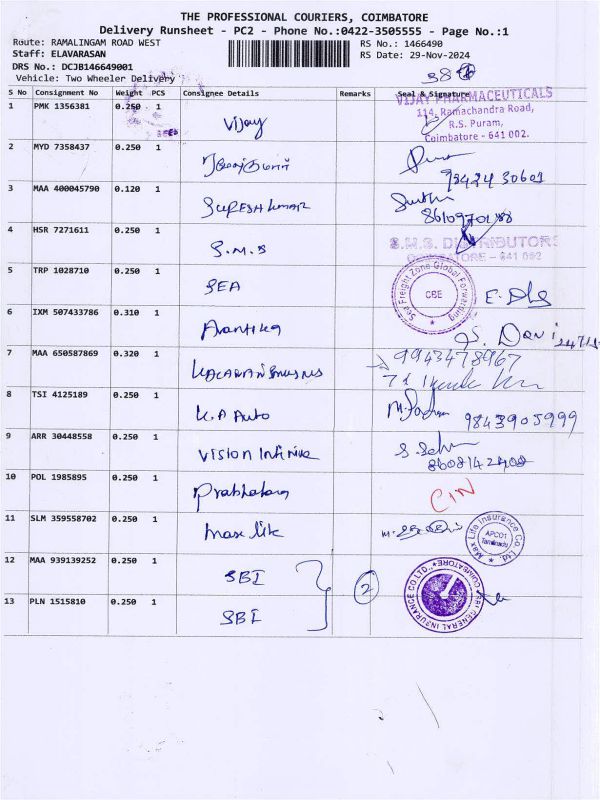 THE PROFESSIONAL COURIERS, COIMBATORE
Delivery Runsheet - PC2 - Phone No.:0422-3505555 - Page No.:1
Route: RAMALINGAM ROAD WEST
RS No.: 1466490
Staff: ELAVARASAN
RS Date: 29-Nov-2024
DRS No.: DCJB146649001
Vehicle: Two Wheeler Delivery
38
S No Consignment No Weight PCS Consignee Details Remarks Seal & Signature
1 PMK 1356381 0.250 1 Vijay
VIJAY PHARMACEUTICALS
114, Ramachandra Road,
R.S. Puram,
Coimbatore - 641 002.
2 MYD 7358437 0.250 1
98424 30601
3 MAA 400045790 0.120 1 SURESH KUMAR
8610970188
4 HSR 7271611 0.250 1 S.M.S
S.M.S. DISTRIBUTORS
COIMBATORE - 641 002
5 TRP 1028710 0.250 1 SEA
Sea Freight Zone Global Forwarding
CBE
6 IXM 507433786 0.310 1 Avantika
S. Devi
7 MAA 650587869 0.320 1
9943478967
8 TSI 4125189 0.250 1 K.A Auto
9843905999
9 ARR 30448558 0.250 1 Vision Infinite
8608142408
10 POL 1985895 0.250 1 Prabhakar
11 SLM 359558702 0.250 1 Max life
Max Life Insurance Co. Ltd.
APC01
Tamilnadu
12 MAA 939139252 0.250 1 SBI
2
SBI GENERAL INSURANCE CO. LTD., COIMBATORE
13 PLN 1515810 0.250 1 SBI